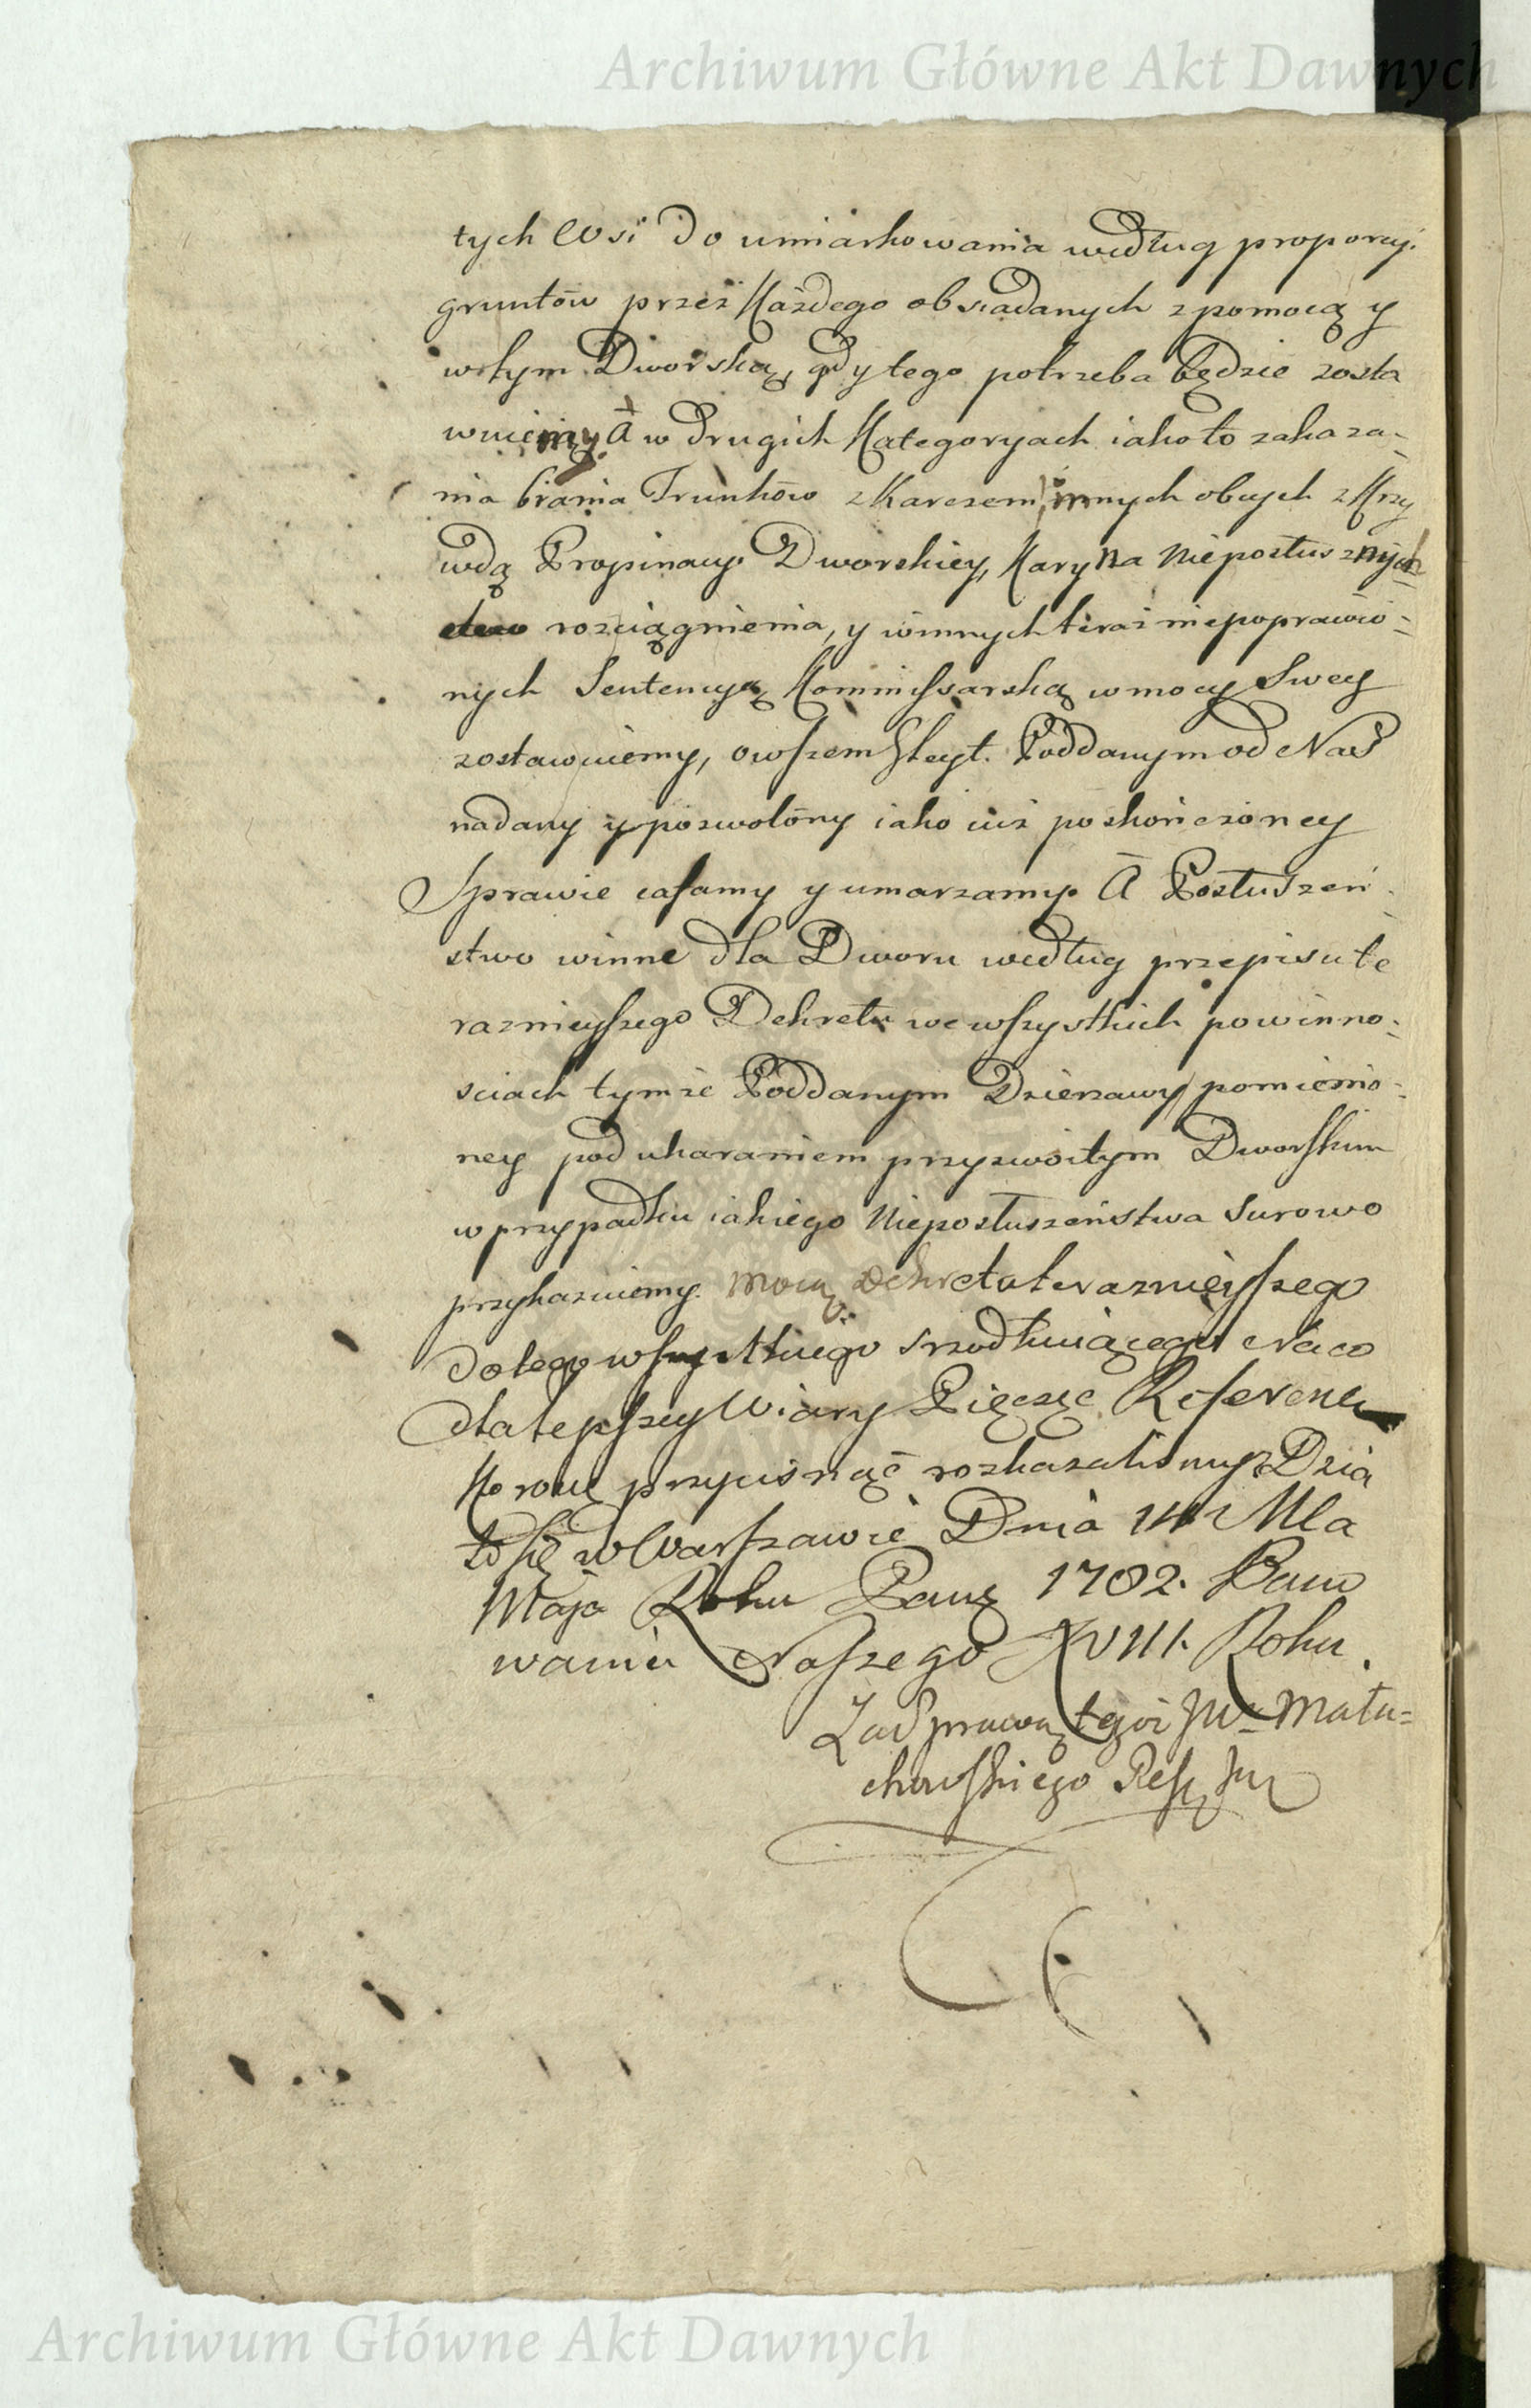 Archiwum Główne Akt Dawnych
tych Wsi do umiarkowania według proporcyi
gruntōw przez Każdego obsiadanych z pomocą y
wtym Dworską, gdy tego potrzeba będzie zosta
wuiemy. A w drugich Kategoryach iako to zakaza-
nia brania Trunkōw z Karczem innych obcych z Krzy
wdą Propinacyi Dworskiey, Kary na Nieposłusznych
rozciągnienia, y winnych teraz niepoprawio-
nych Sentencyą Kommissarską w mocy Swey
zostawuiemy, owszem Gleyt. Poddanym od Nas
nadany y pozwolōny iako iuż po skończoney
Sprawie cassamy y umarzamy. A Posłuszeń-
stwo winne dla Dworu według przepisu te
raznieyszego Dekretu we wszystkich powinno-
sciach tymże Poddanym Dzierzawy pomienio-
ney pod ukaraniem przyzwoitym Dworskim
w przypadku iakiego Nieposłuszeństwa Surowo
przykazuiemy. Mocą Dekretu teraznieyszego
do tego wszystkiego srzodkuiącego Na co
dla lepszey Wiary Pięczęć Referen
Koronę przycisnąć rozkazalismy. Dzia
ło się w Warszawie Dnia 14 Mca
Maja Roku Pans 1782. Pano
wania Naszego XVIII. Roku.
Za Sprawą tegoż JW Mała=
chowskiego Ref
Archiwum Główne Akt Dawnych